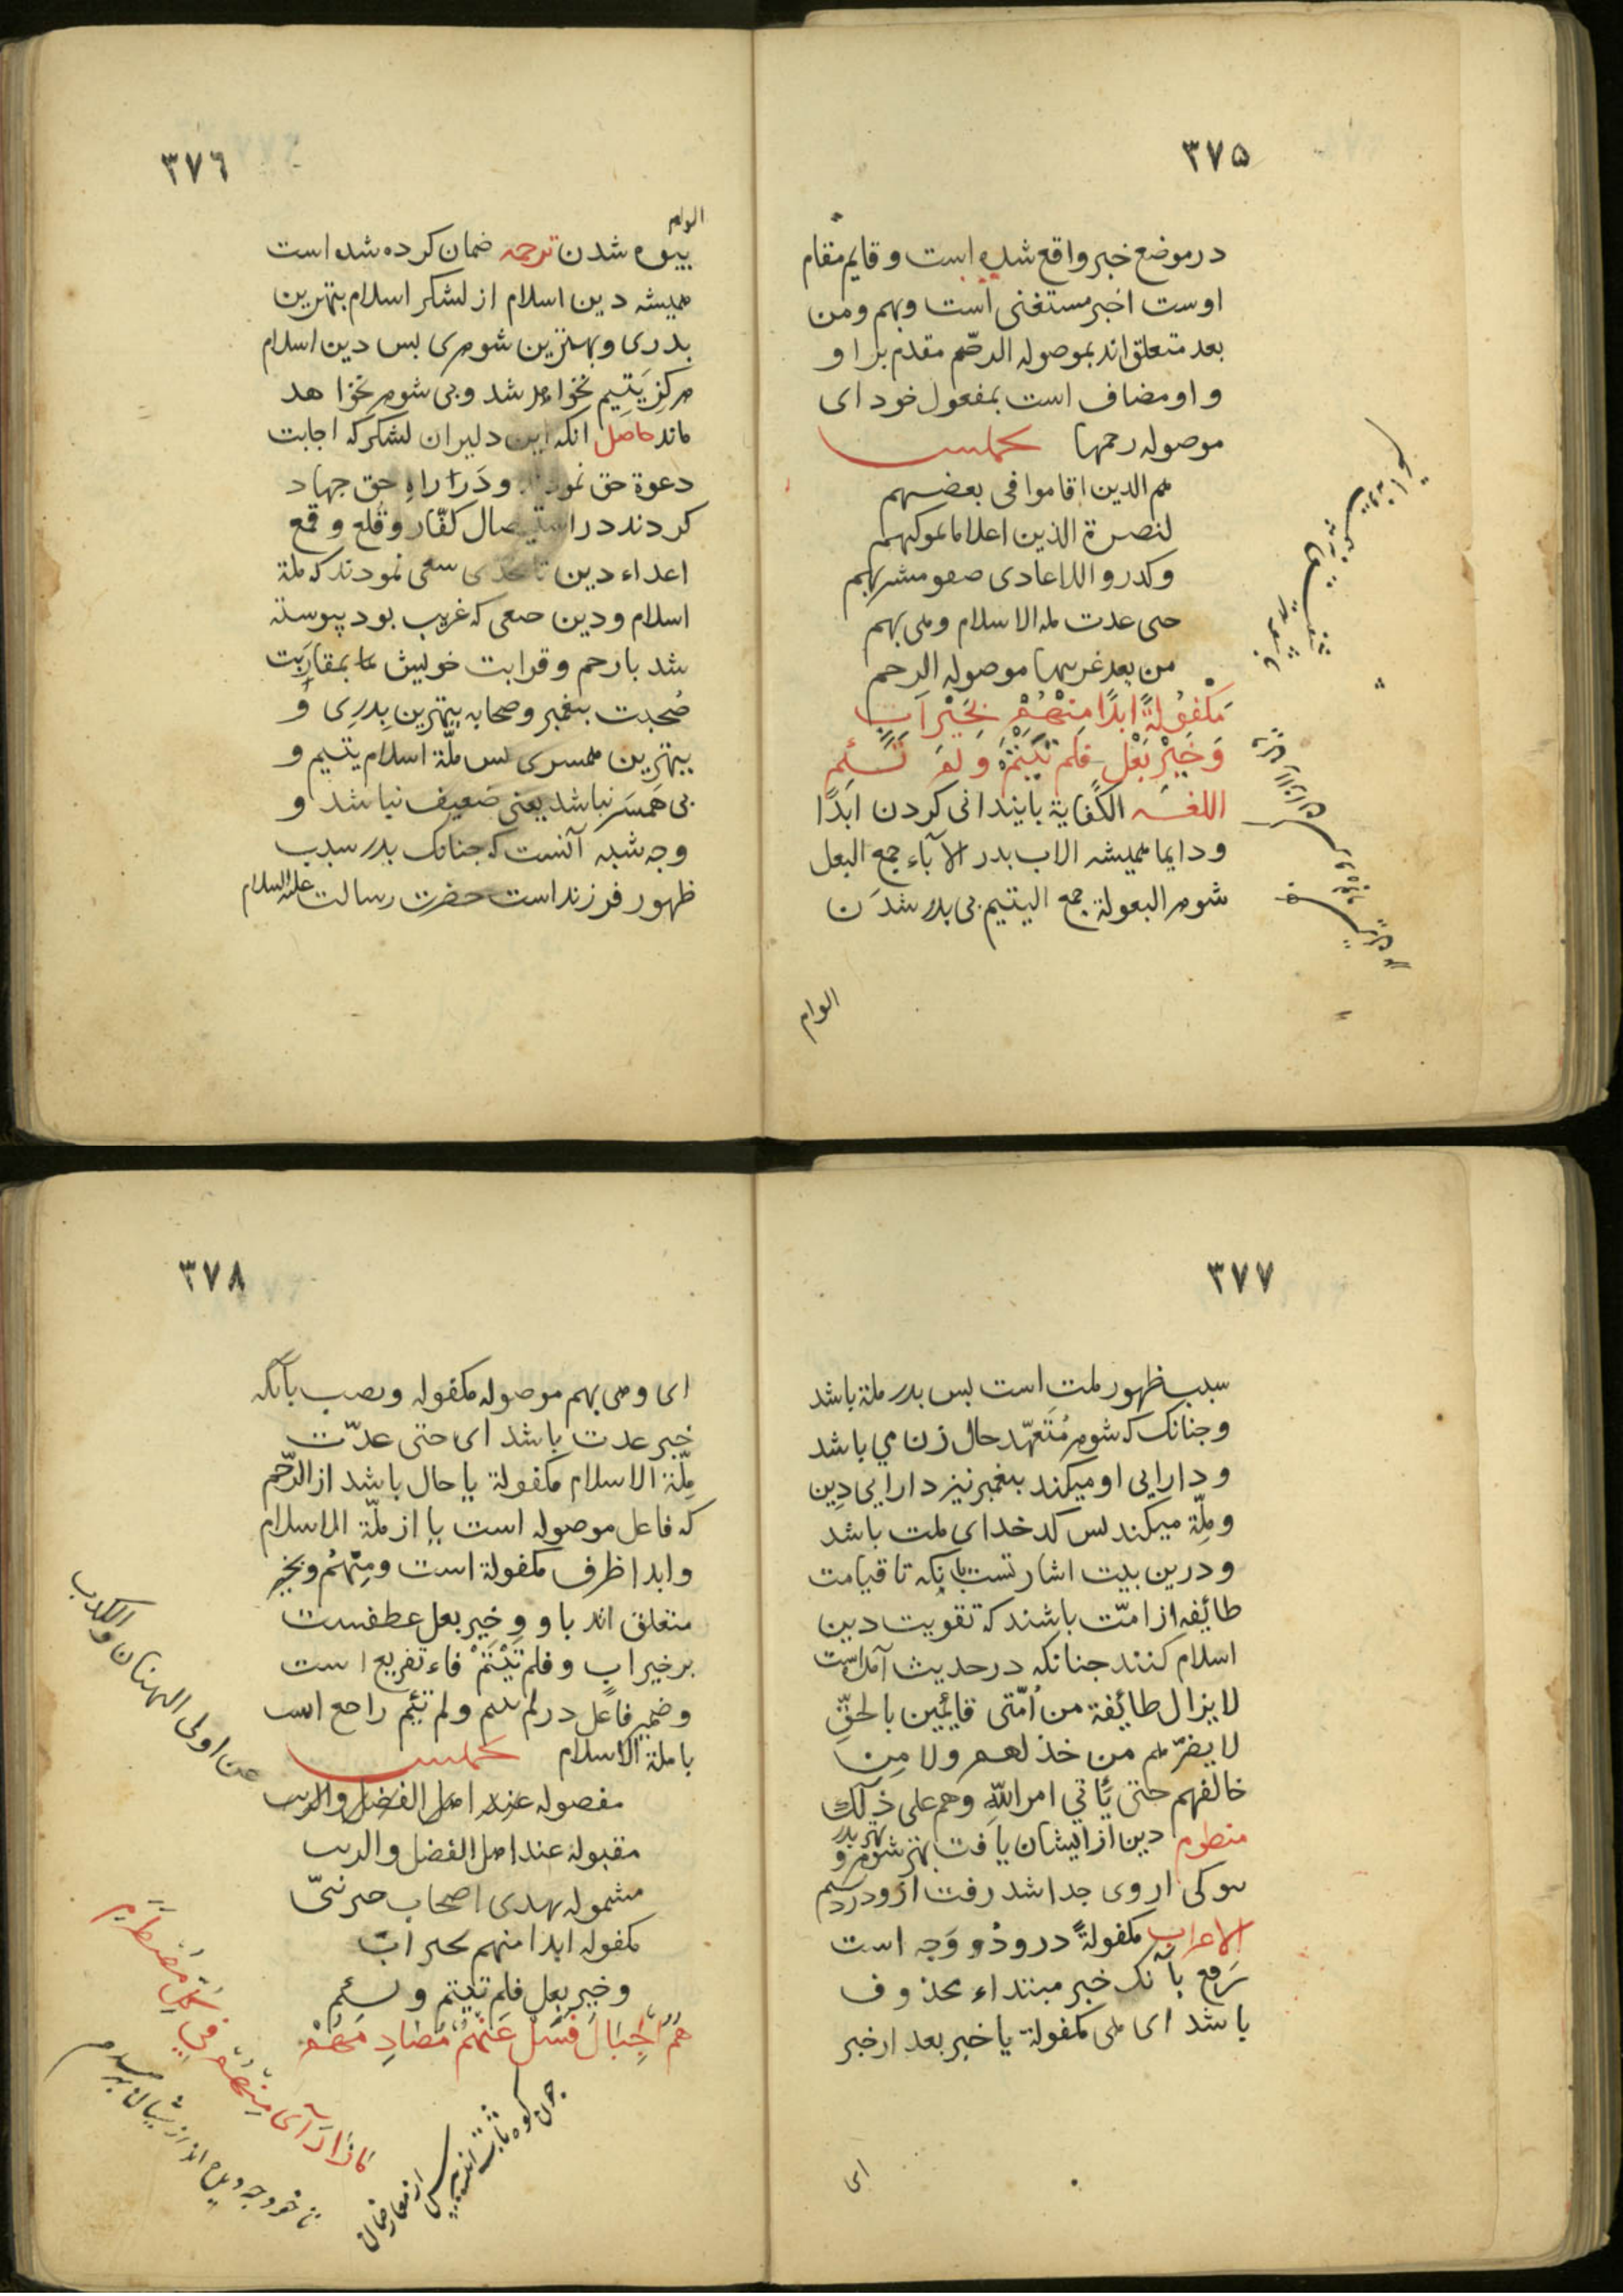 ٣٧٥
در موضع خبر واقع شده است و قایم مقام
اوست اخبر مستغنی است و بهم و من
بعد متعلق‌اند بموصوله الرحم مقدم بر او
و او مضاف است بمفعول خود ای
موصوله رحمها تخمیس
هم الدین اقاموا فی بعضهم
لنصرة الذین اعلاما بموکبهم
وکدروا للاعادی صفو مشربهم
حی عدت مله الاسلام وهی بهم
من بعد غربتها موصوله الرحم
مَكْفُولَةً ابدًا مِنْهُمْ بِخَيْرِ اَبٍ
وَخَيْرِ بَعْلٍ فَلَم تَيْتَمْ وَلَمْ تَئِمِ
اللغه الکفایة بایندانی کردن ابدًا
و دایما همیشه الاب بدر الآباء جمع البعل
شوهر البعولة جمع الیتیم بی بدر شدن
الوام
٣٧٦
الوام
بیوه شدن ترجمه ضمان کرده شده است
همیشه دین اسلام از لشکر اسلام بهترین
بدری و بهترین شوهری بس دین اسلام
هرکز یَتیم نخواهد شد و بی شوهر نخواهد
ماند حاصل انکه این دلیران لشکر که اجابت
دعوة حق نمودند و در راه حق جهاد
کردند در استیصال کفّار و قلع و قمع
اعداء دین تا بحدی سعی نمودند که ملة
اسلام و دین حنفی که غریب بود پیوسته
شد بارحم و قرابت خویش بمقارَبت
صُحبت بیغمبر و صحابه بهترین بدرِی و
بهترین همسری بس ملّة اسلام یتیم و
بی هَمسَر نباشد یعنی ضعیف نباشد و
وجه شبه آنست که جنانک بدر سبب
ظهور فرزند است حضرت رسالت علیه السلام
٣٧٧
سبب ظهور ملت است بس بدر ملة باشد
و جنانک که شوهر مُتَعَهّد حال زن می باشد
و دارایی او میکند بیغمبر نیز دارایی دین
و ملّة میکند بس کدخدای ملت باشد
و درین بیت اشارتست بانکه تا قیامت
طائیفه از امّت باشند که تقویت دین
اسلام کنند جنانکه در حدیث آمده است
لا یزال طائیفة من اُمّتی قائمین بالحقِّ
لا یضرّهم من خذلهم ولا من
خالفهم حتی یَأتی امر اللّهِ وهم علی ذلک
منظوم دین از ایشان یافت بهتر شوهر و بهتر بدر
الاعراب مکفولةً درو دُو وَجه است
رَفع بآنک خبر مبتداء محذوف
باشد ای هی مکفولة یا خبر بعد از خبر
ای
٣٧٨
ای و هی بهم موصوله مکفوله و نصب بآنکه
خبر عدت باشد ای حتی عدّت
مِلّة الاسلام مکفولة یا حال باشد از الرّحم
که فاعل موصوله است یا از ملّة الاسلام
و ابدا ظرف مکفولة است ومِنهُم و بخیر
متعلق اند باو و و خیر بعل عطفست
بر خیر ابٍ و فلم تَیْتَمْ فاء تفریع است
و ضمیر فاعل در لم تیتم و لم تئِم راجع است
با ملة الاسلام تخمیس
مفصوله عند اهل الفضل والادب
عن اولی البهتان والکذب
مقبولة عند اهل الفضل والادب
مشمولة بهدی اصحاب خیر نبیّ
مکفوله ابدا منهم بخیر اب
وخیر بعل فلم تیتم و لم تئم
هُمُ الجِبَالُ فَسَلْ عَنْهُمْ مُصَادِمَهُمْ
مَاذَا رَآی مِنْهُمْ فِي كُلِّ مُصْطَدَمِ